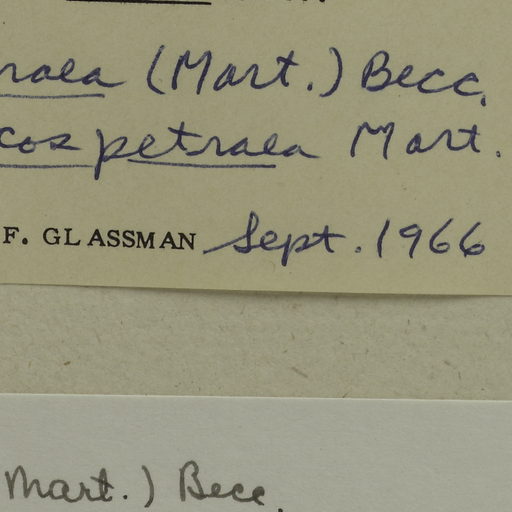 raea (Mart.) Becc.
cos petraea Mart.
F. GLASSMAN Sept. 1966
Mart.) Becc.